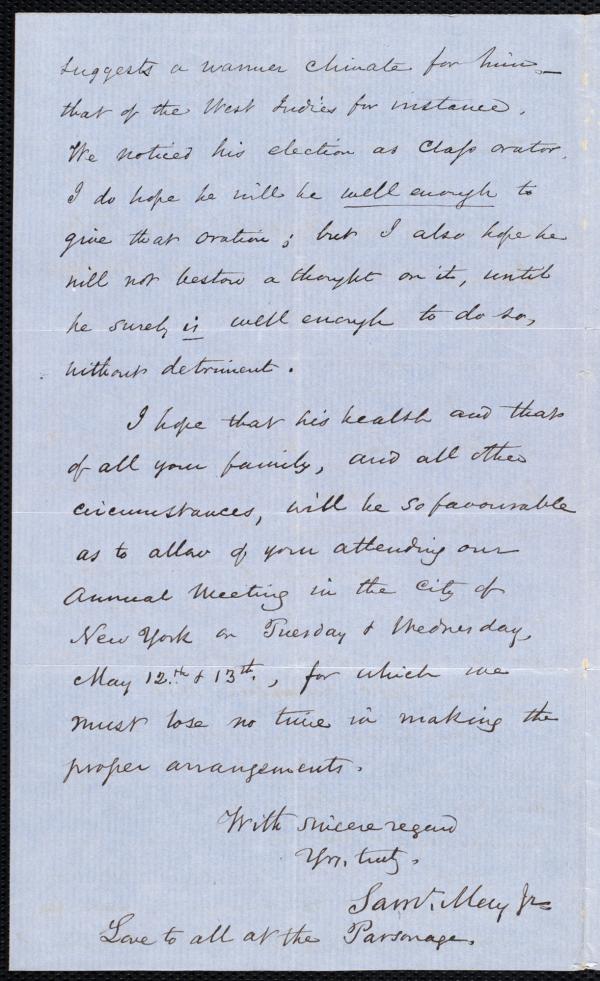 suggests a warmer climate for him, –
that of the West Indies for instance.
We noticed his election as Class orator.
I do hope he will be well enough to
give that oration; but I also hope he
will not bestow a thought on it, until
he surely is well enough to do so,
without detriment.
I hope that his health and that
of all your family, and all other
circumstances, will be so favourable
as to allow of your attending our
Annual Meeting in the city of
New York on Tuesday & Wednesday,
May 12.th & 13th., for which we
must lose no time in making the
proper arrangements.
With sincere regard
Yrs, truly.
Saml. May Jr.
Love to all at the Parsonage.